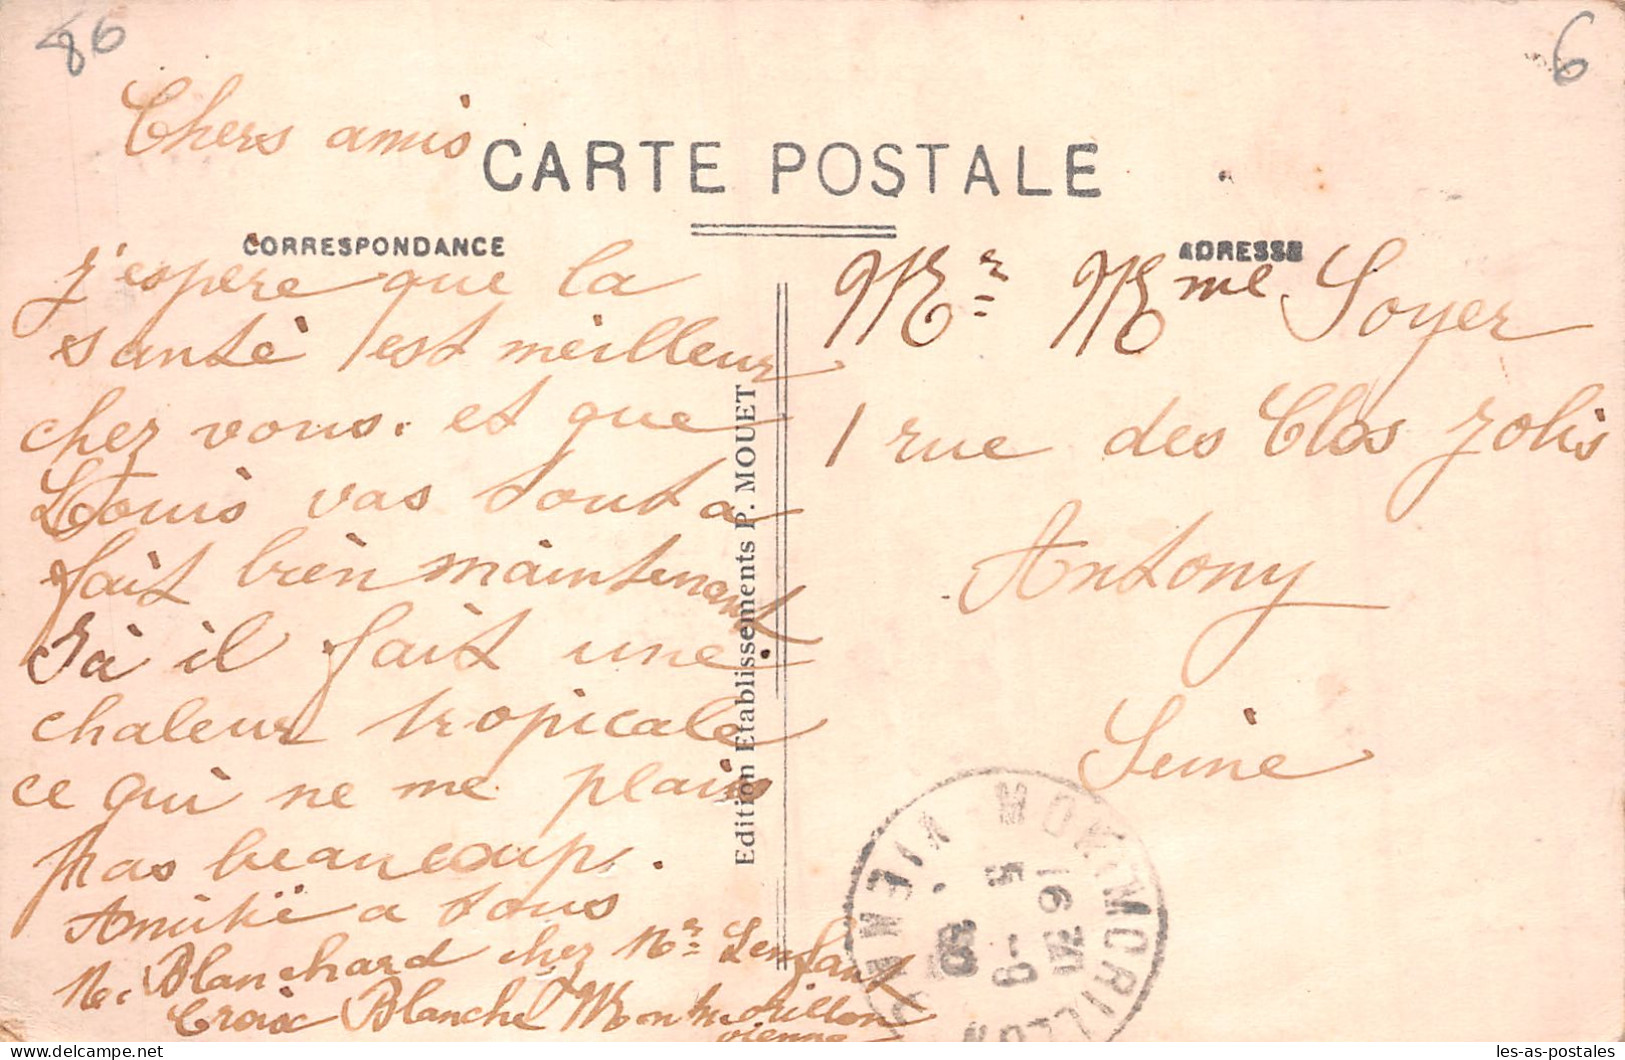 86
6
Chers amis
CARTE POSTALE
CORRESPONDANCE
ADRESSE
j'espere que la
santé est meilleur
chez vous. et que
Louis vas tout a
fait bien maintenant
Ià il fait une
chaleur tropicale
ce qui ne me plais
pas beaucoup.
Amitïé a tous
Blanchard chez Mr Lenfant
Croix Blanche Montmorillon
vienne
Edition Etablissements P. MOUET
Mr Mme Soyer
1 rue des Clos jolis
Antony
Seine
MONTMORILLON
VIENNE
16 30
5 - 9
30
les-as-postales